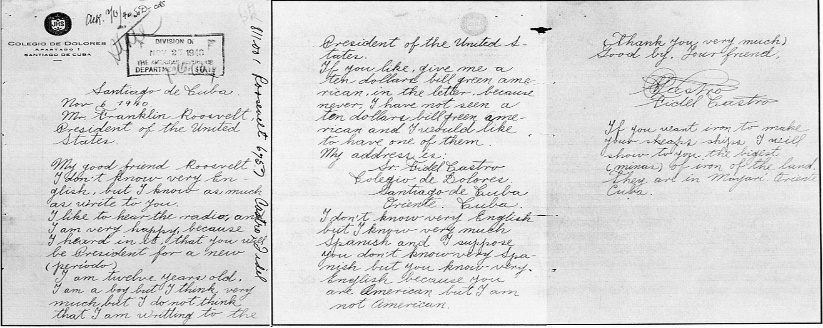 COLEGIO DE DOLORES
APARTADO 1
SANTIAGO DE CUBA
DIVISION OF
THE AMERICAN REPUBLICS
DEPARTMENT OF STATE
Santiago de Cuba.
Nov 6 1940
Mr Franklin Roosvelt,
President of the United
States.
My good friend Roosvelt
I don't know very En-
glish, but I know as much
as write to you.
I like to hear the radio, and
I am very happy, because
I heard in it, that you will
be President for a new
(periodo)
I am twelve years old.
I am a boy but I think very
much but I do not think
that I am writting to the
811.001 Roosevelt 6757 Castro, Fidel
President of the United S-
tates.
If you like, give me a
ten dollars bill green ame-
rican, in the letter, because
never, I have not seen a
ten dollars bill green ame-
rican and I would like
to have one of them.
My address is:
Sr. Fidel Castro
Colegio de Dolores.
Santiago de Cuba
Oriente. Cuba.
I don't know very English
but I know very much
Spanish and I suppose
you don't know very Spa-
nish but you know very
English because you
are American but I am
not American.
(Thank you very much)
Good by. Your friend,
Castro
Fidel Castro
If you want iron to make
your sheaps ships I will
show to you the bigest
(minas) of iron of the land.
They are in Mayari. Oriente
Cuba.